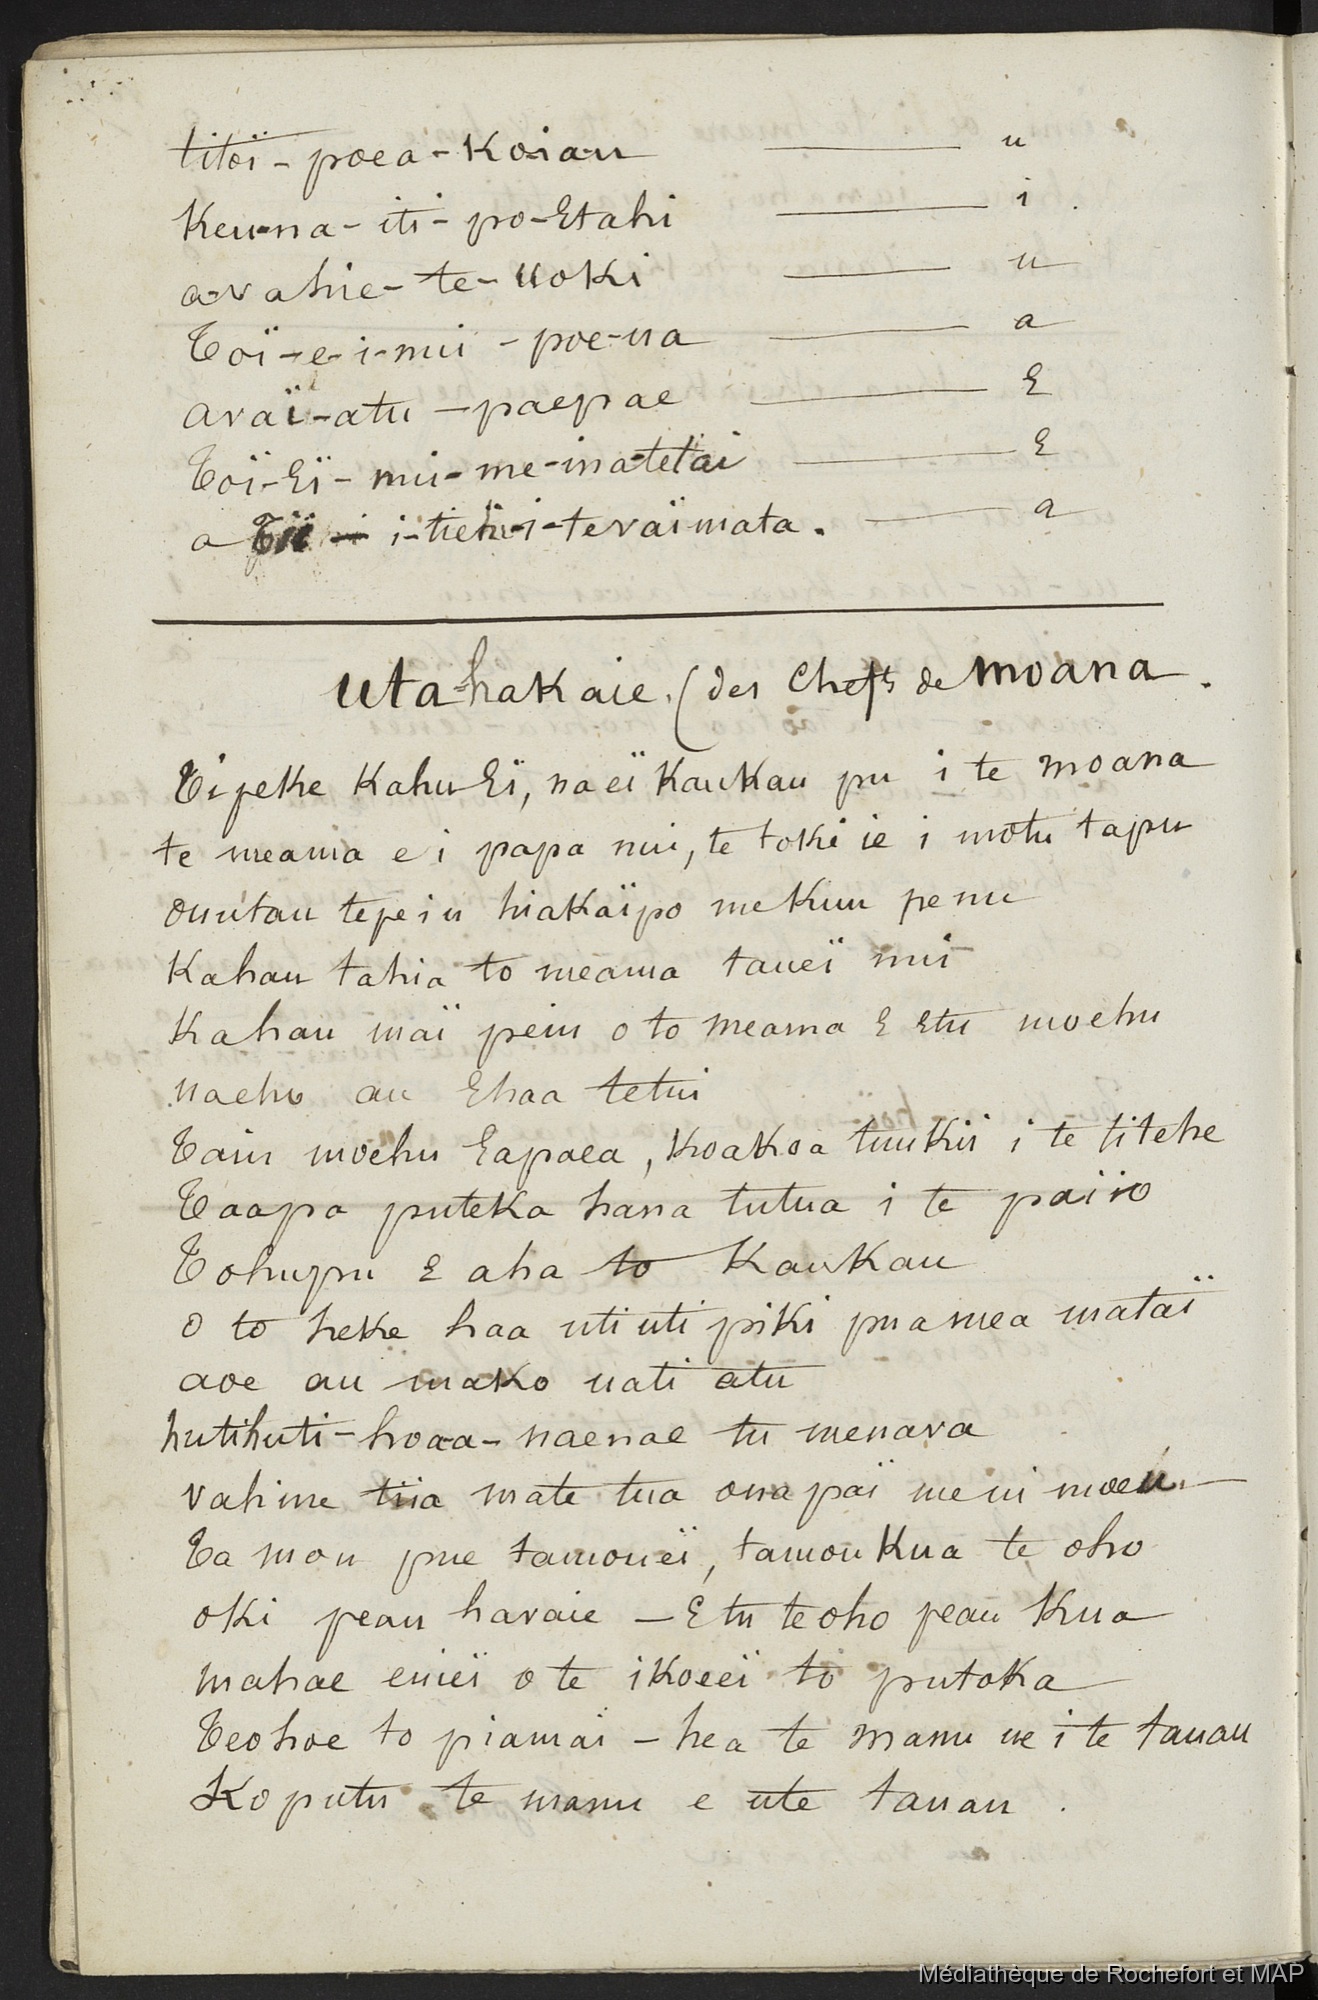 titoï - poea - Koiau ——— u
Keu-na - iti - po-Etahi ——— i .
a-vahie - te - uoki ——— u
Toï - e - i - mii - poe-ua ——— a
avaï - atu - paepae ——— E
Toï-Eï - mii - me-inatetaï ——— E
a Tii - i-tiehi-i-tevaïmata . ——— a
Uta-hakaie . ( des Chefs de moana .
Tipeke Kahu Eï, na eï Kaukau pu i te moana
te meama e i papa nui, te toki ie i motu tapu
ouutau tepeiu hiakaïpo mekuu penu
Kahau tahia to meama taueï mii
Kahau maï peiu o to meama E Etu moehu
naeho au Ehaa tetui
Taiu moehu Eapaea , Koakoa tuukii i te titehe
Taapa puteka hana tutua i te paiio
Tohupu E aha to Kaukau
o to heke haa utiuti piki puamea mataï
aoe au mako uati atu
hutihuti - hoaa - naenae tu menava
vahine tiia mate tua ona païmeui moeu. —
Ta mou pue tamoueï, tamou Kua te oho
oki peau havaie — Etu te oho peau Kua
mahae euieï o te ikoeeï to putoka
Teohoe to piamaï — hea te manu ue i te tauau
Koputu te manu e ute tauau .
Médiathèque de Rochefort et MAP